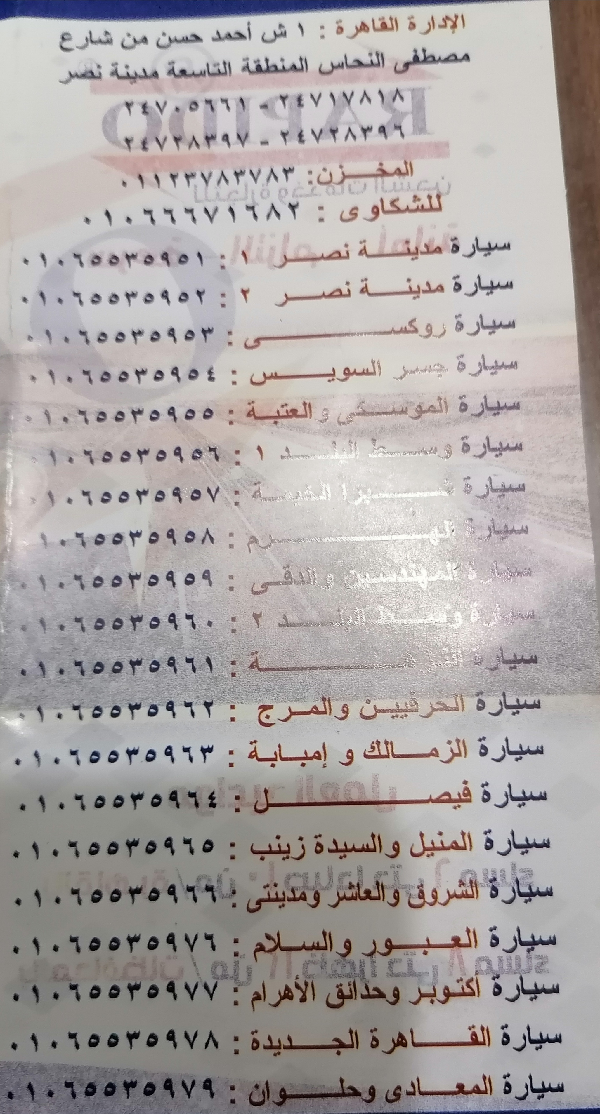 الإدارة القاهرة : ١ ش أحمد حسن من شارع
مصطفى النحاس المنطقة التاسعة مدينة نصر
٢٤٧١٧٨١٨ - ٢٤٧٠٥٦٦١
٢٤٧٢٨٣٩٦ - ٢٤٧٢٨٣٩٧
المخزن: ٠١١٢٣٧٨٣٧٨٣
للشكاوى : ٠١٠٦٦٦٧١٦٨٢
سيارة مدينة نصر ١ : ٠١٠٦٥٥٣٥٩٥١
سيارة مدينة نصر ٢ : ٠١٠٦٥٥٣٥٩٥٢
سيارة روكسى : ٠١٠٦٥٥٣٥٩٥٣
سيارة جسر السويس : ٠١٠٦٥٥٣٥٩٥٤
سيارة الموسكى والعتبة : ٠١٠٦٥٥٣٥٩٥٥
سيارة وسط البلد ١ : ٠١٠٦٥٥٣٥٩٥٦
سيارة شبرا الخيمة : ٠١٠٦٥٥٣٥٩٥٧
سيارة الهرم : ٠١٠٦٥٥٣٥٩٥٨
سيارة المهندسين والدقى : ٠١٠٦٥٥٣٥٩٥٩
سيارة وسط البلد ٢ : ٠١٠٦٥٥٣٥٩٦٠
سيارة : ٠١٠٦٥٥٣٥٩٦١
سيارة الحرفيين والمرج : ٠١٠٦٥٥٣٥٩٦٢
سيارة الزمالك و إمبابة : ٠١٠٦٥٥٣٥٩٦٣
سيارة فيصل : ٠١٠٦٥٥٣٥٩٦٤
سيارة المنيل والسيدة زينب : ٠١٠٦٥٥٣٥٩٦٥
سيارة الشروق والعاشر ومدينتى : ٠١٠٦٥٥٣٥٩٦٦
سيارة العبور والسلام : ٠١٠٦٥٥٣٥٩٧٦
سيارة اكتوبر وحدائق الأهرام : ٠١٠٦٥٥٣٥٩٧٧
سيارة القاهرة الجديدة : ٠١٠٦٥٥٣٥٩٧٨
سيارة المعادى وحلوان : ٠١٠٦٥٥٣٥٩٧٩